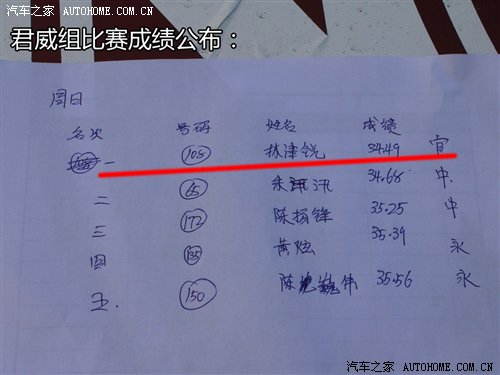 汽车之家 AUTOHOME.COM.CN
君威组比赛成绩公布：
周日
名次 号码 姓名 成绩
一 105 林津锐 34.49 官
二 65 朱 汛 34.68 中
三 172 陈扬锋 35.25 中
四 135 黄 35.39 永
五. 150 陈 伟 35.56 永
汽车之家 AUTOHOME.COM.CN